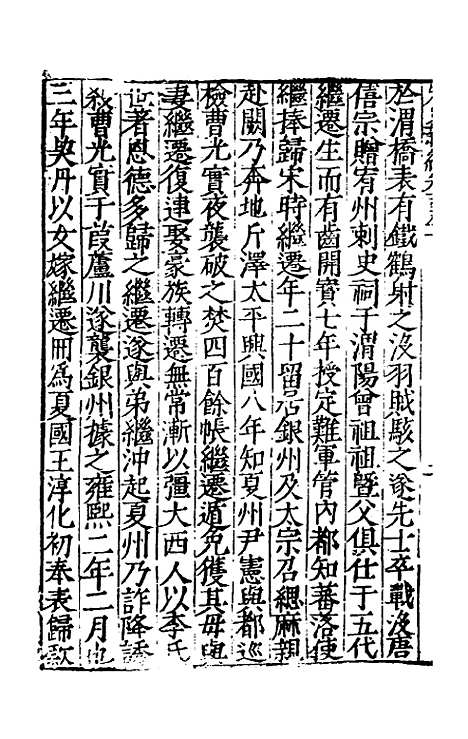 於渭橋表有鐵鶴射之沒羽賊駭之遂先士卒戰沒唐
僖宗贈宥州刺史祠于渭陽曾祖祖曁父俱仕于五代
繼遷生而有齒開寶七年授定難軍管內都知蕃落使
繼捧歸宋時繼遷年二十留居銀州及太宗召緦麻親
赴闕乃奔地斤澤太平興國八年知夏州尹憲與都巡
檢曹光實夜襲破之焚四百餘帳繼遷遁免獲其母與
妻繼遷復連娶豪族轉遷無常漸以彊大西人以李氏
世著恩德多歸之繼遷遂與弟繼沖起夏州乃詐降誘
殺曹光實于葭蘆川遂襲銀州據之雍熙二年二月也
三年契丹以女嫁繼遷冊為夏國王淳化初奉表歸欵